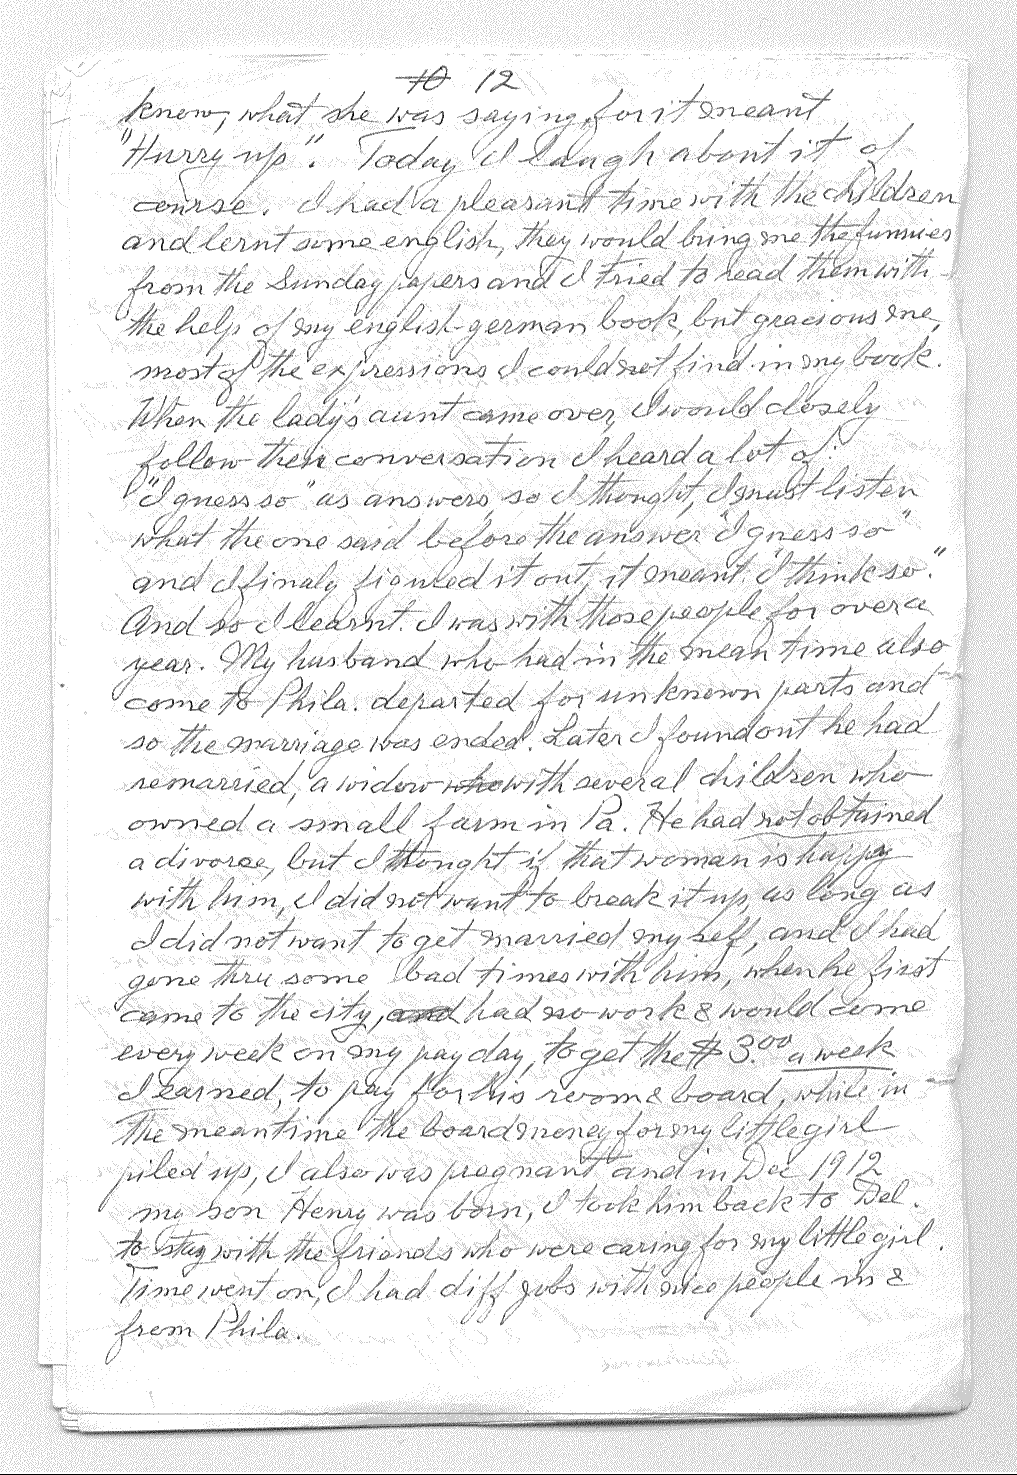 10 12
know, what she was saying, for it meant
"Hurry up". Today I laugh about it of
course. I had a pleasant time with the children
and lernt some english, they would bring me the funnies
from the Sunday papers and I tried to read them with
the help of my english-german book, but gracious me,
most of the expressions I could not find in my book.
When the lady's aunt came over, I would closely
follow their conversation I heard a lot of:
"I guess so" as answers, so I thought, I must listen
what the one said before the answer "I guess so"
and I finaly figured it out, it meant "I think so."
And so I learnt. I was with those people for over a
year. My husband who had in the mean time also
come to Phila. departed for unknown parts and
so the marriage was ended. Later I found out he had
remarried, a widow who with several children who
owned a small farm in Pa. He had not obtained
a divorce, but I thought if that woman is happy
with him, I did not want to break it up, as long as
I did not want to get married my self, and I had
gone thru some bad times with him, when he first
came to the city, and had no work & would come
every week on my pay day, to get the $3.00 a week
I earned, to pay for his room & board, while in
the meantime the board money for my little girl
piled up, I also was pregnant and in Dec 1912
my son Henry was born, I took him back to Del.
to stay with the friends who were caring for my little girl.
Time went on, I had diff jobs with nice people in &
from Phila.